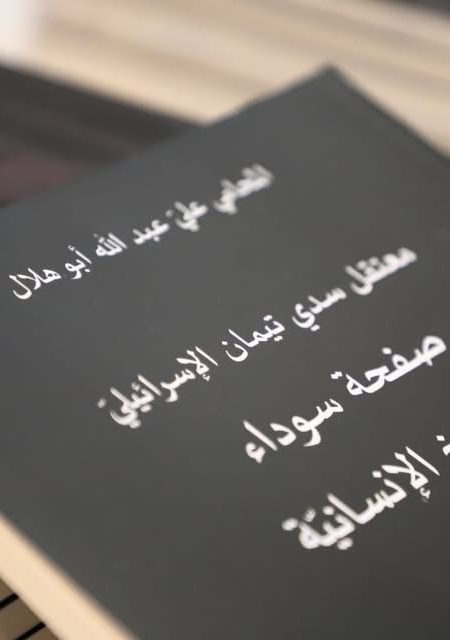 المحامي عليّ عبد الله أبو هلال
معتقل سدي تيمان الإسرائيليّ
صفحة سوداء
الإنسانيّة